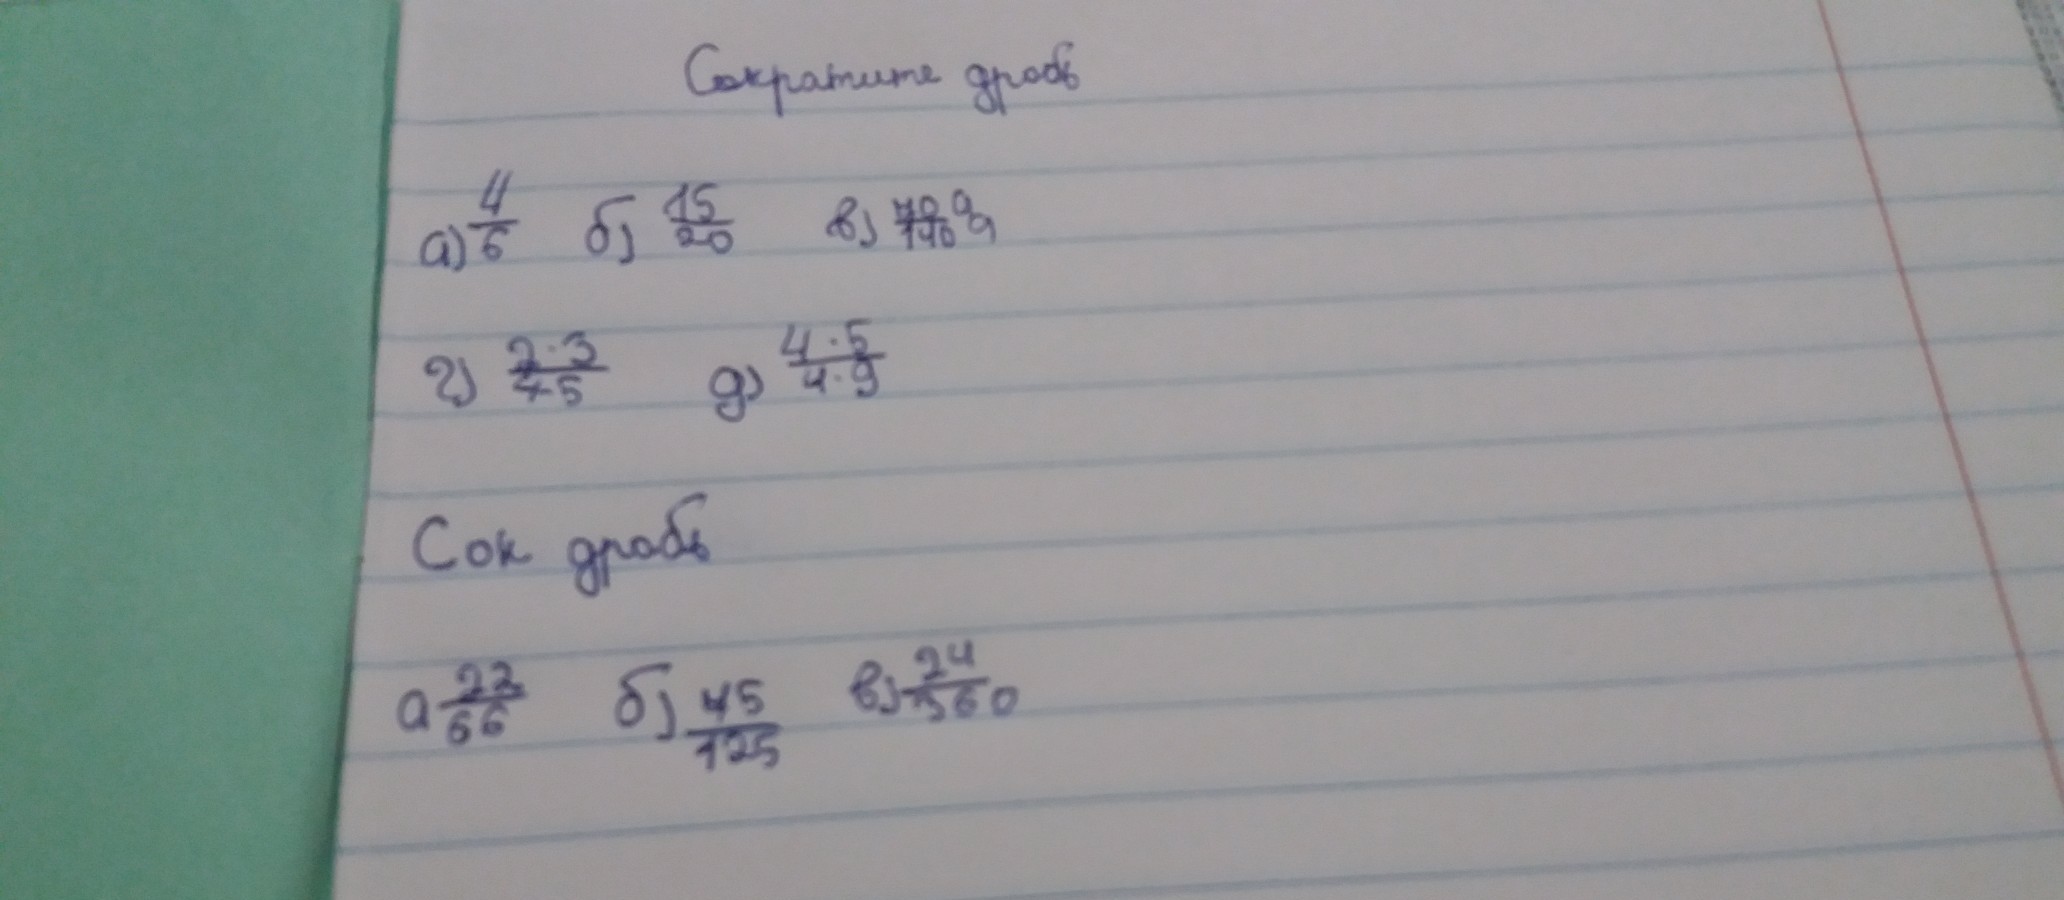 Сократите дробь
а) 4/6 б) 15/20 в)
г) 2·3/4·5 д) 4·5/4·9
Сок дробь
а 22/66 б) 45/125 в) 24/360